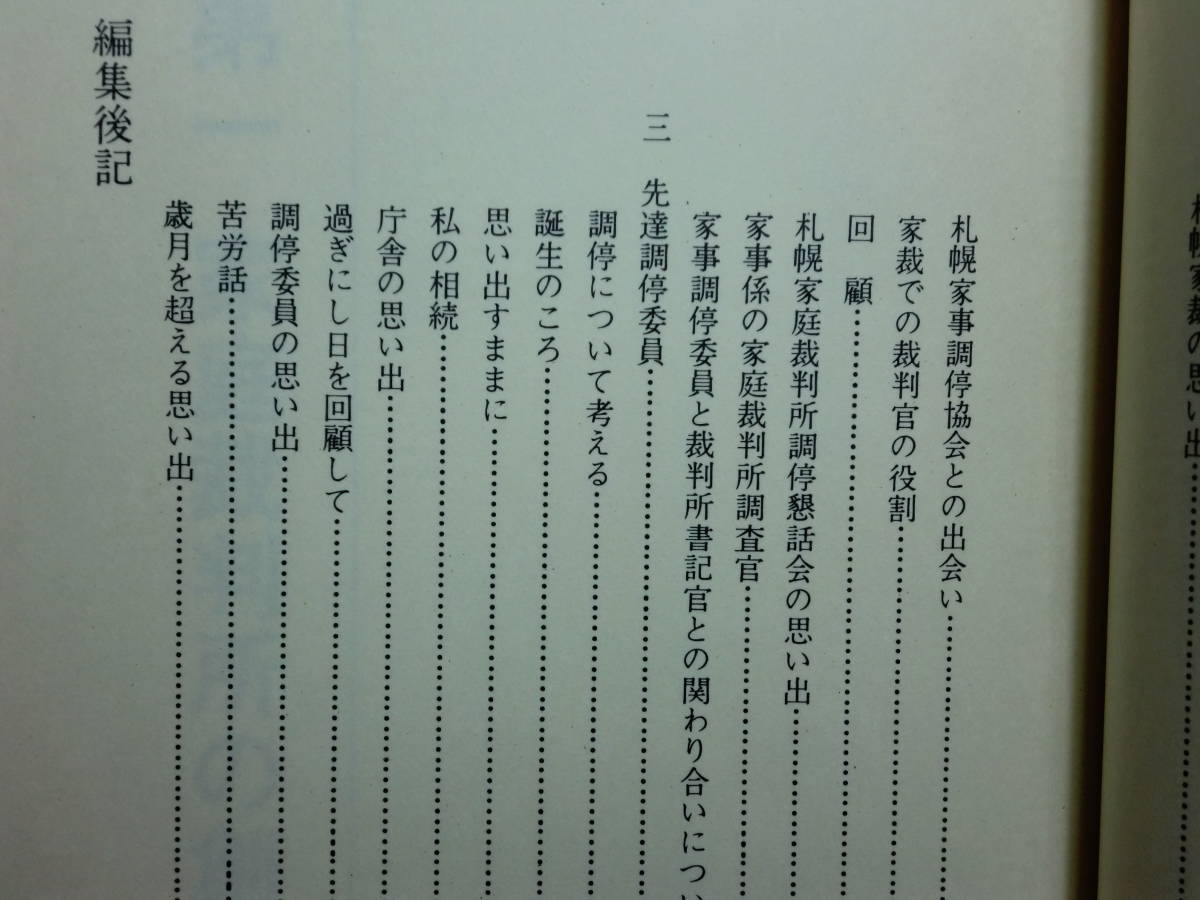 札幌家裁の思い出
札幌家事調停協会との出会い
家裁での裁判官の役割
回顧
札幌家庭裁判所調停懇話会の思い出
家事係の家庭裁判所調査官
家事調停委員と裁判所書記官との関わり合いについ
三 先達調停委員
調停について考える
誕生のころ
思い出すままに
私の相続
庁舎の思い出
過ぎにし日を回顧して
調停委員の思い出
苦労話
歳月を超える思い出
編集後記